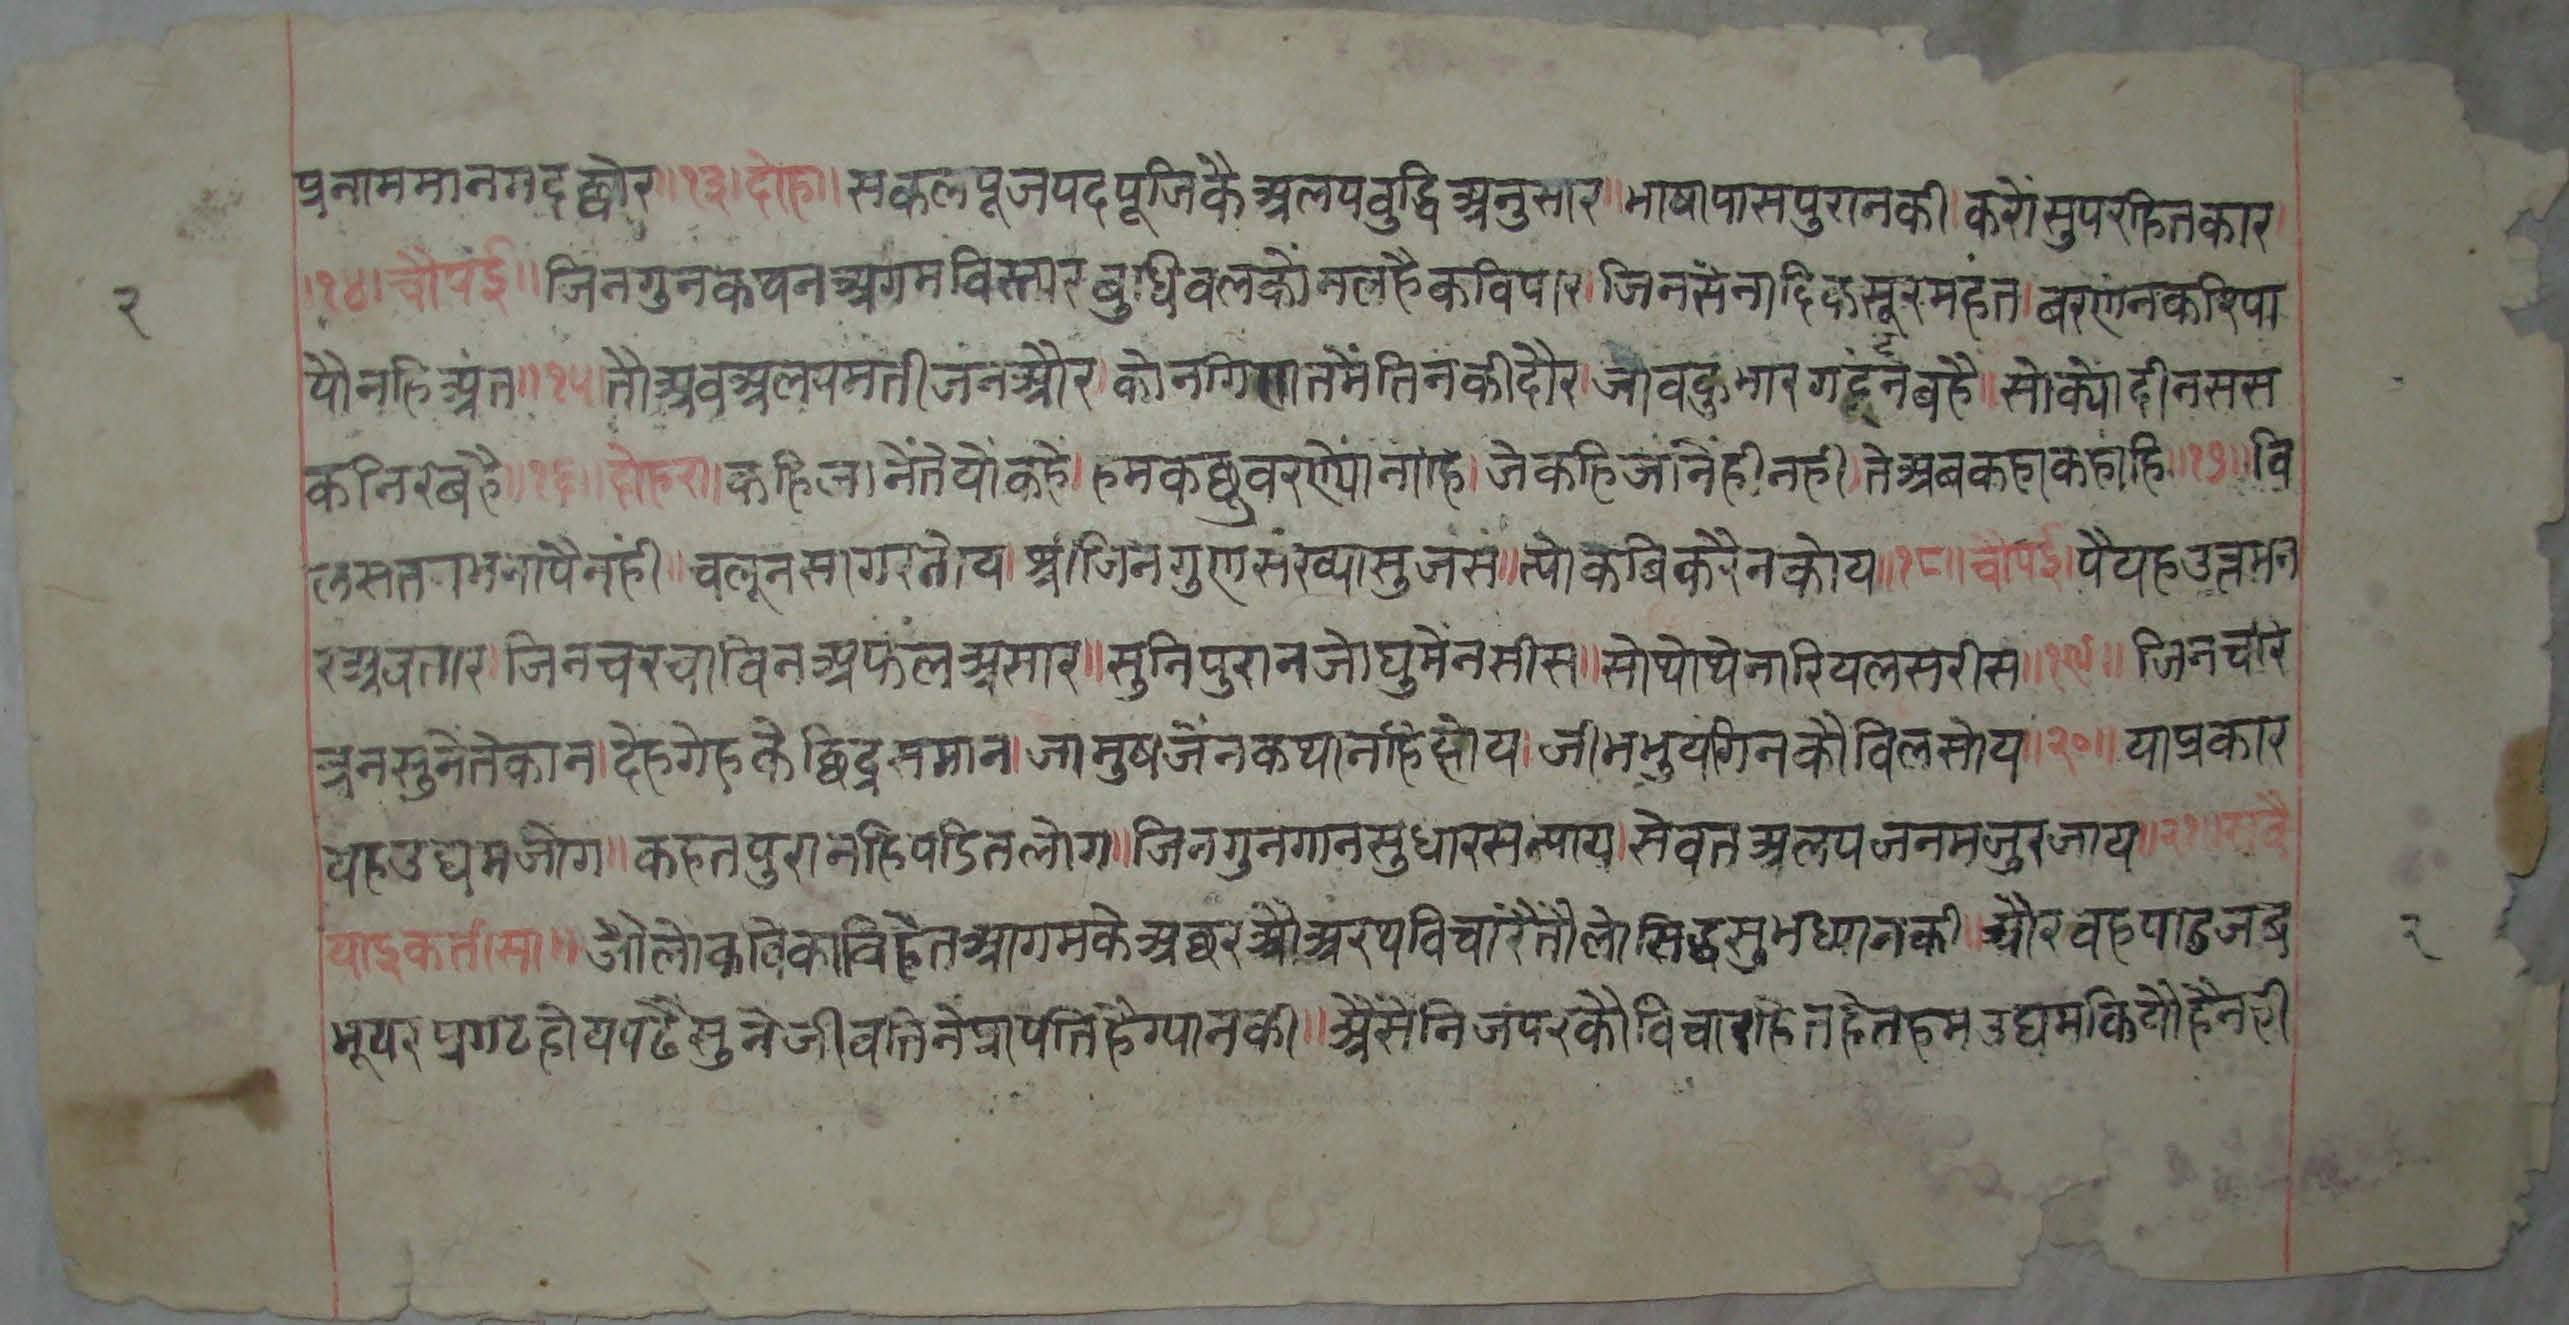 प्रनाममानमदछोर॥१३॥दोहा॥सकलपूजपदपूजिकै अलपवुद्धिअनुसार॥भाषापासपुरानकी करोंसुपरहितकार
॥१४॥चौपई॥जिनगुनकथनअगमविस्तार बुधिवलकोंनलहैकविपार॥जिनसेनादिकसूरमहंत॥बरणनकरिपा
यौनहिअंत॥१५॥तौअवअलपमतीजनऔर॥कोनगिणतमेंतिनकीदौर॥ सोक्योंदीनसस
कनिरबहै॥१६॥दोहरा॥कहिजानेंतेयोंकहैं॥हमकछुवरण्योंनाहि॥जेकहिजांनेंहीनही॥तेअबकहाकहाहि॥१७॥वि
चलूनसागरतोय॥श्रीजिनगुणसंख्यासुजस॥त्योकविकरैनकोय॥१८॥चौपई॥पैयहउत्तमन
रअवतार॥जिनचरचाविनअफलअसार॥सुनिपुरानजोघुमेनसीस॥सोथोथेनारियलसरीस॥१९॥जिनचरि
त्रनसुनेतेकान॥देहगेहकेछिद्रसमान॥जामुषजैनकथानहिहोय॥जीभभुयंगिनकौविलसोय॥२०॥याप्रकार
यहउद्यमजोग॥कहतपुरानहिपंडितलोग॥जिनगुनगानसुधारसन्याय॥सेवतअलपजनमजुरजाय॥२१॥सवै
याइकतीसा॥जौलोकविकाविहेतआगमकेअछरऔअरथविचारैतौलोसिद्धसुभध्यानकी॥औरवहपाठजब
भूपरप्रगटहोयपढैसुनेजीवतिनेप्रापतिहैग्यानकी॥औसेंनिजपरकौविचारहितहेतहमउद्यमकियौहैनही
२
२